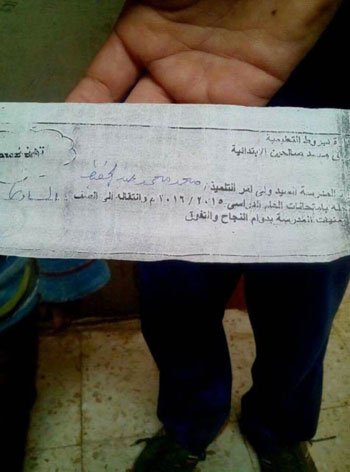 ة ديروط التعليمية
محمد صالحين الابتدائية
المدرسة السيد ولى امر التلميذ / محمد محمد عبد الحفيظ
له بامتحانات العام الدراسى ٢٠١٥ / ٢٠١٦ م وانتقاله الى الصف السادس
المدرسة بدوام النجاح والتفوق